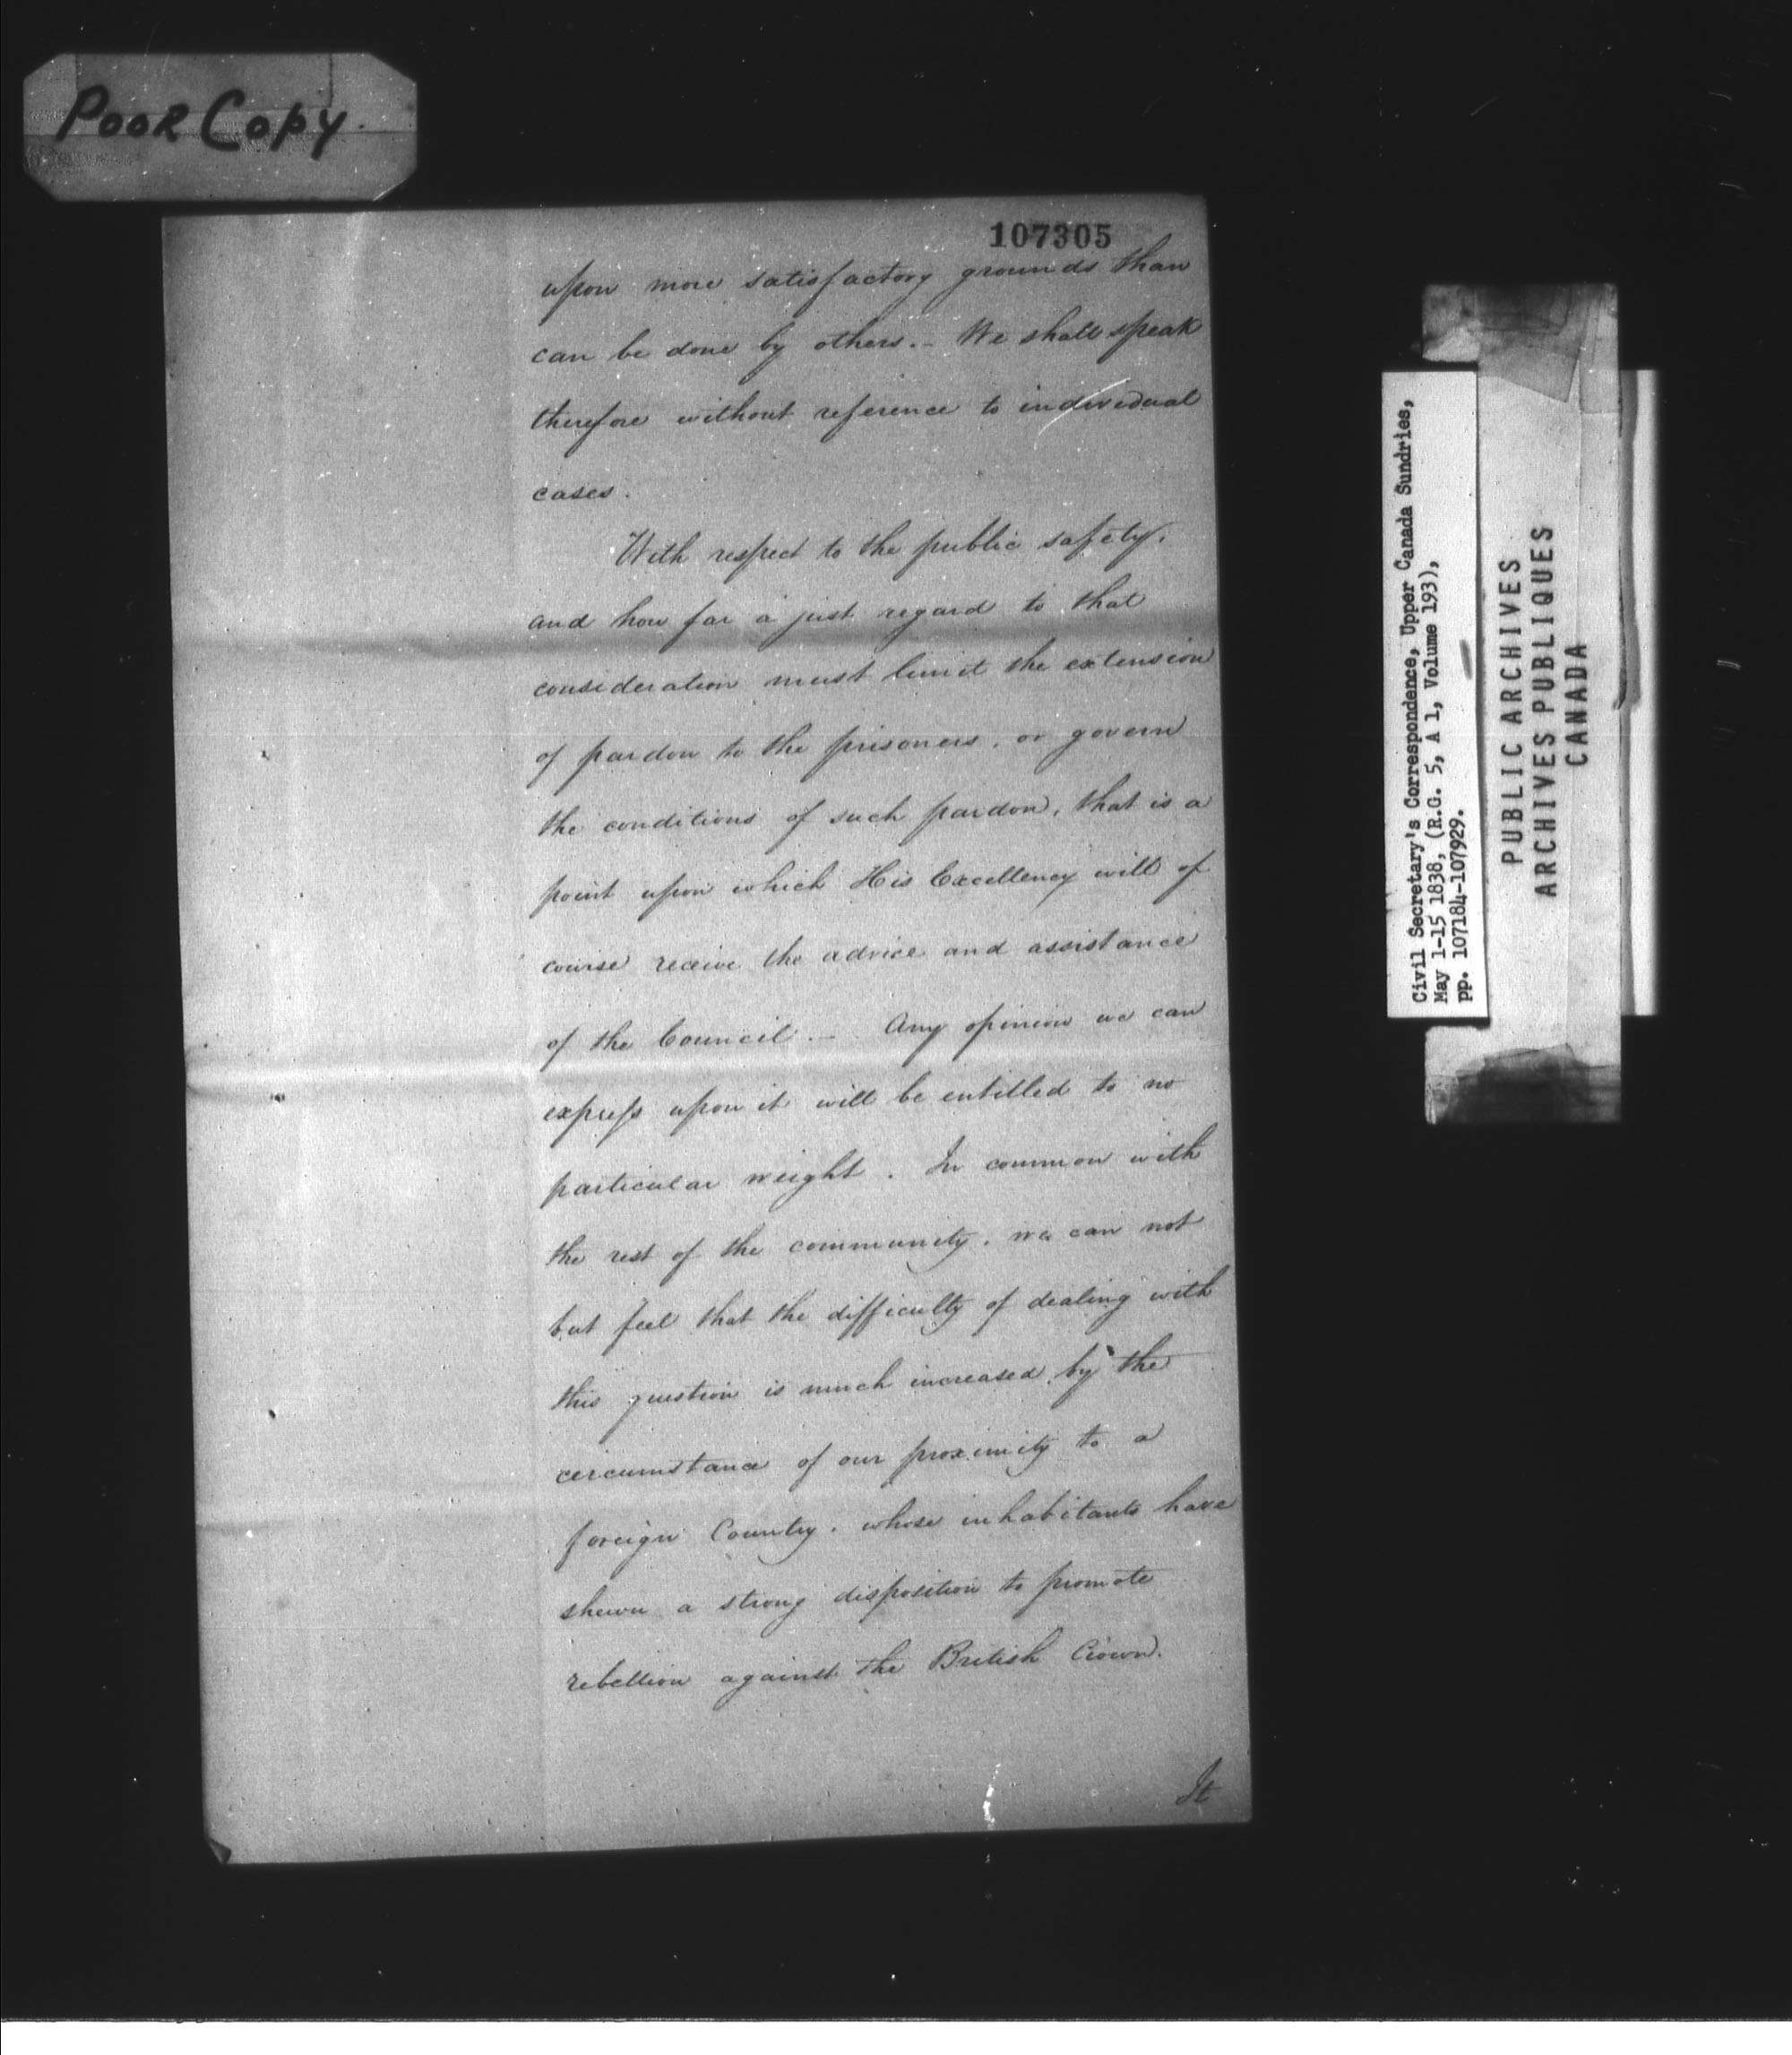 Poor Copy.
107305
upon more satisfactory grounds than
can be done by others. - We shall speak
therefore without reference to individual
cases.
With respect to the public safety,
and how far a just regard to that
consideration must limit the extension
of pardon to the prisoners, or govern
the conditions of such pardon, that is a
point upon which His Excellency will of
course receive the advice and assistance
of the Council. - Any opinion we can
express upon it will be entitled to no
particular weight. In common with
the rest of the community, we can not
but feel that the difficulty of dealing with
this question is much increased by the
circumstance of our proximity to a
foreign Country, whose inhabitants have
shewn a strong disposition to promote
rebellion against the British Crown.
It
Civil Secretary's Correspondence, Upper Canada Sundries,
May 1-15 1838, (R.G. 5, A 1, Volume 193),
pp. 107184-107929.
PUBLIC ARCHIVES
ARCHIVES PUBLIQUES
CANADA